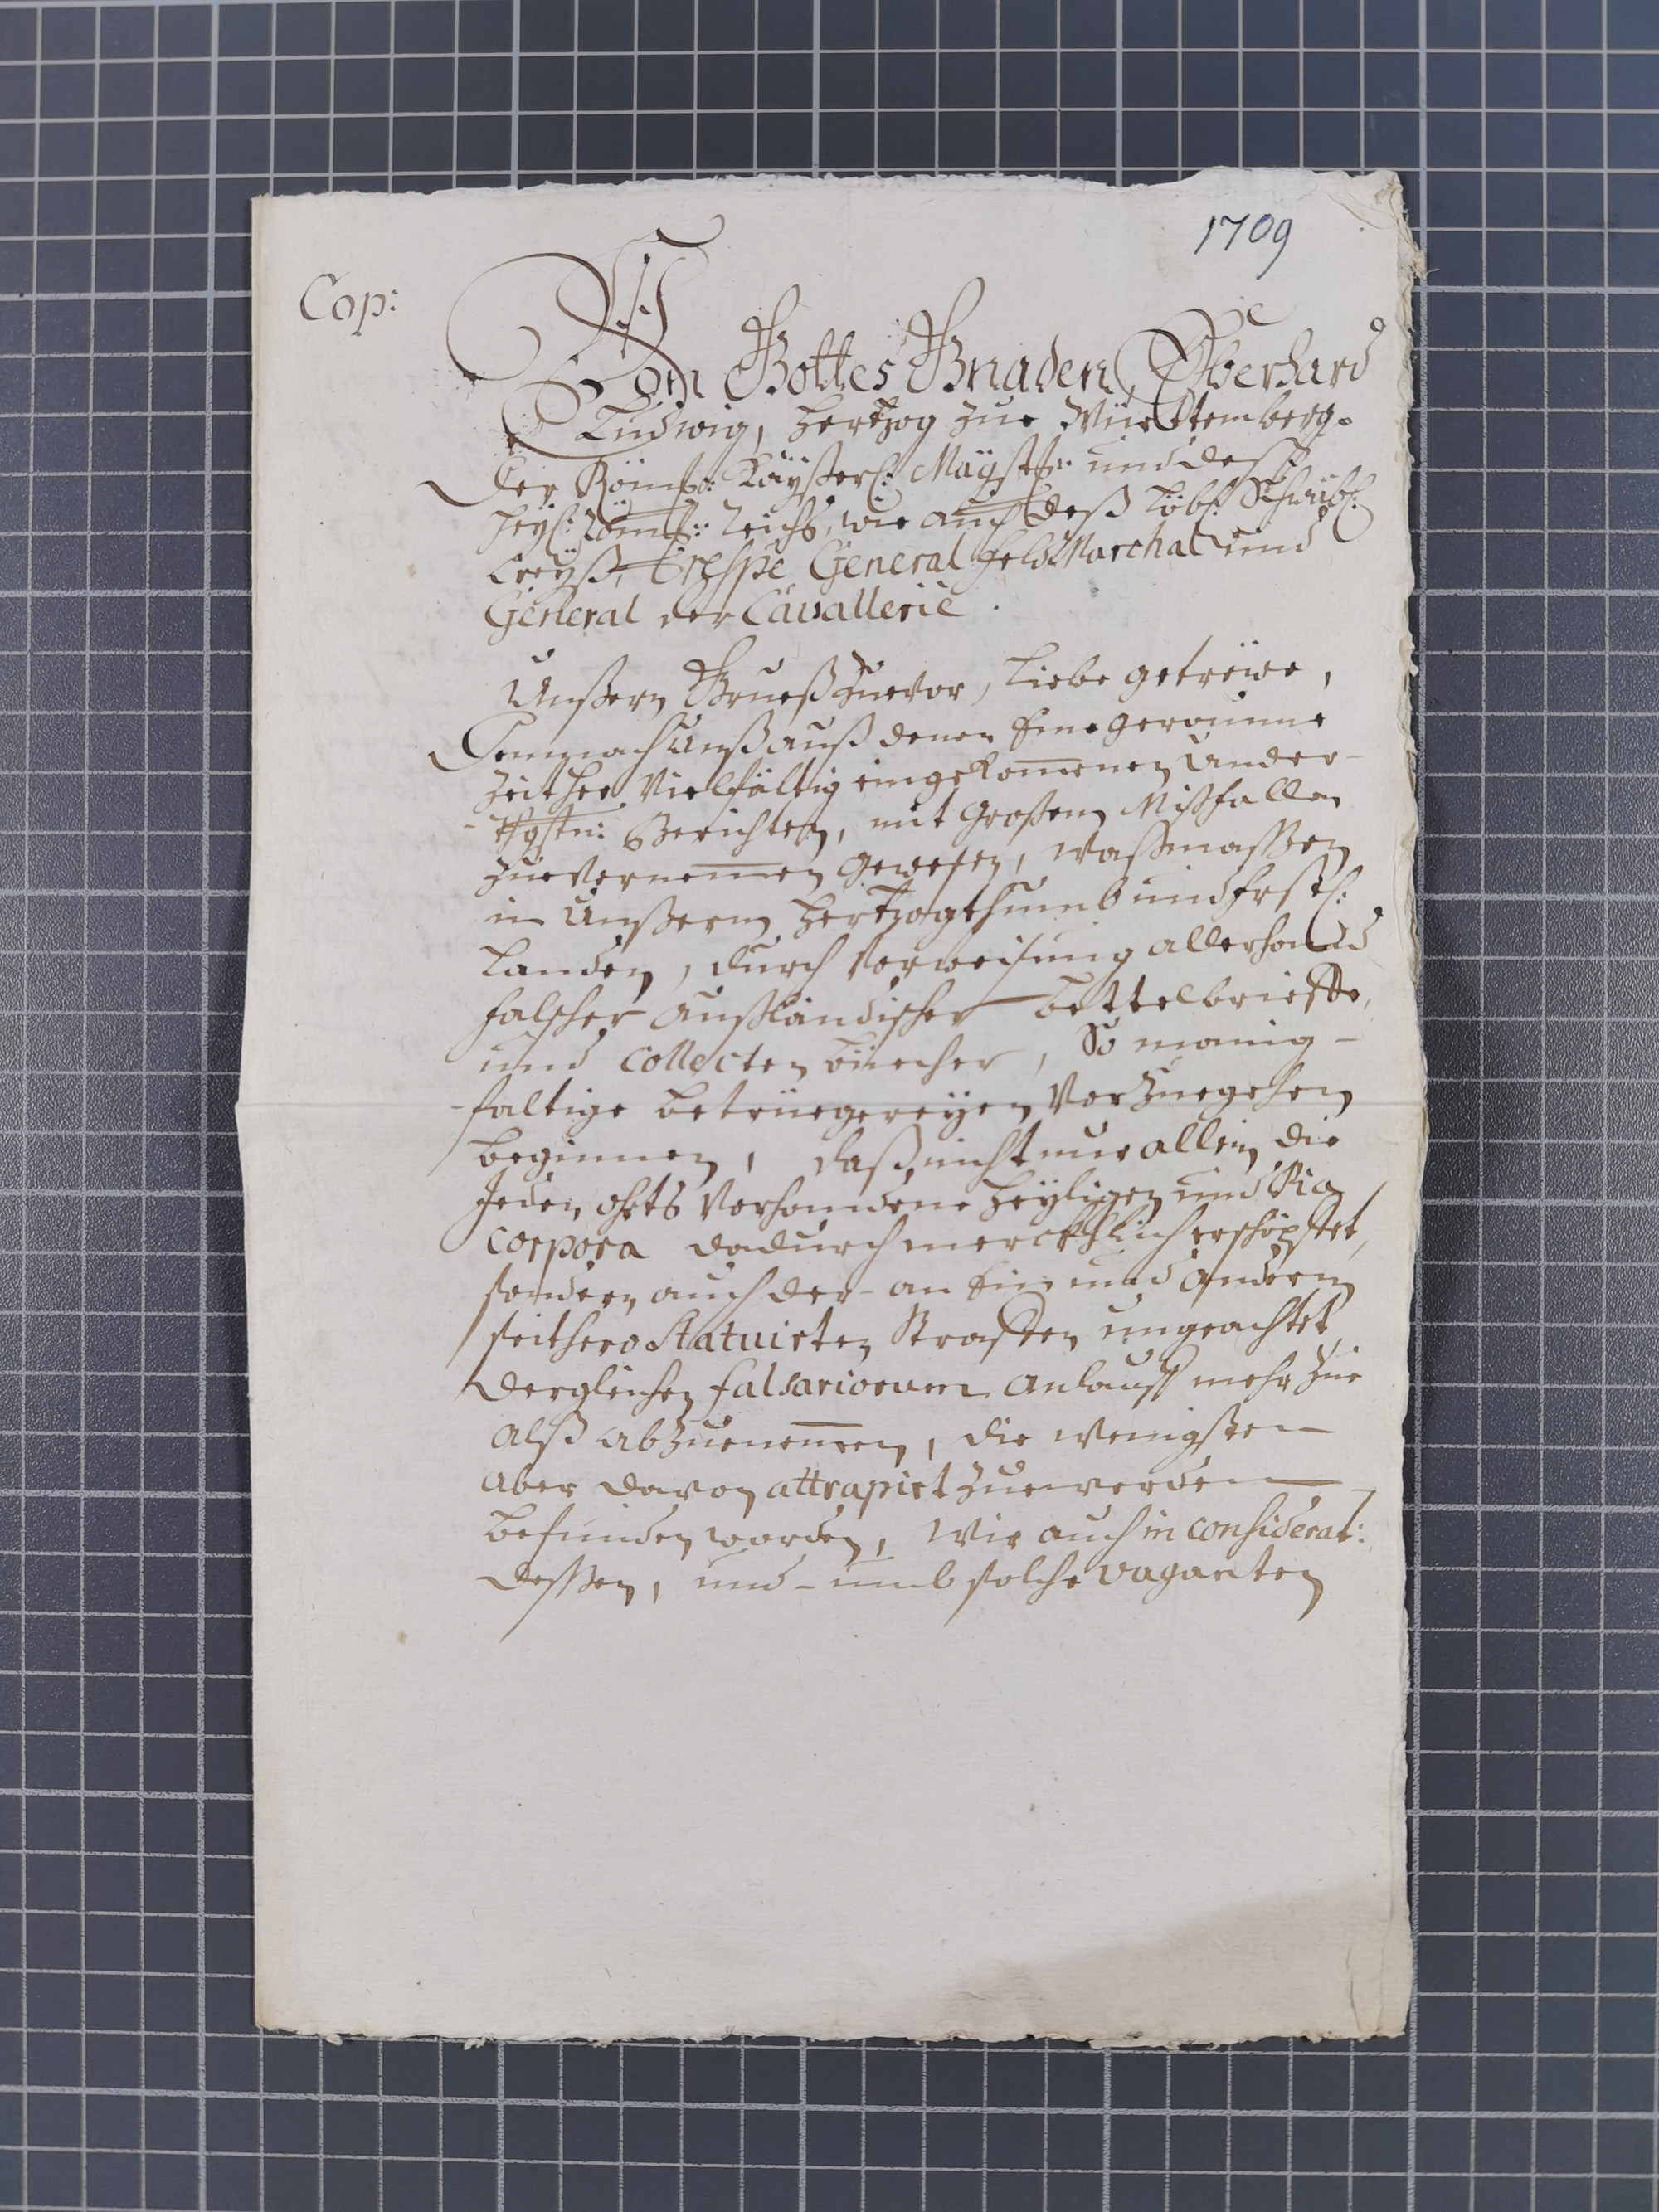 1709
Cop:
Von Gottes Gnaden, Eberhard
Ludwig, Hertzog zue Württemberg.
Der Röms: Kaÿßerl: Maÿstt: und deß
heÿl: Röms: Reichs, wie auch deß Löbl: Schwäb:
Creÿß, respe General Feld Marchal und
General der Cavallerie.
Unßern Grueß zuevor, Liebe getrëwe,
Demnach Unß auß denen Eine geraume
Zeither Vielfältig eingekommenen Under-
-thgstn: Berichten, mit Großem Mißfallen
zue Vernemmen geweßen, waßmaßßen
in Unßerm Hertzogthumb und Frstl:
Landen, durch Vorweisung allerhand
falscher außländischer Bettelbrieffe,
und Collecten Büecher, So manig-
-faltige Betrüegereÿen Vorzuegehen
beginnen, daß nicht nur allein die
Jeden ohrts Vorhandene Heÿligen und Pia
Corpora dadurch merckhlich erschöpffet,
sondern auch der- an Ein und andern
seithero Statuirten Straffen ungeachtet,
dergleichen falsariorum anlauff mehr zue
alß abzuenemmen, die wenigsten
aber davon attrapirt zuewerden
befunden worden, Wir auch in considerat:
deßßen, und- umb solche vaganten